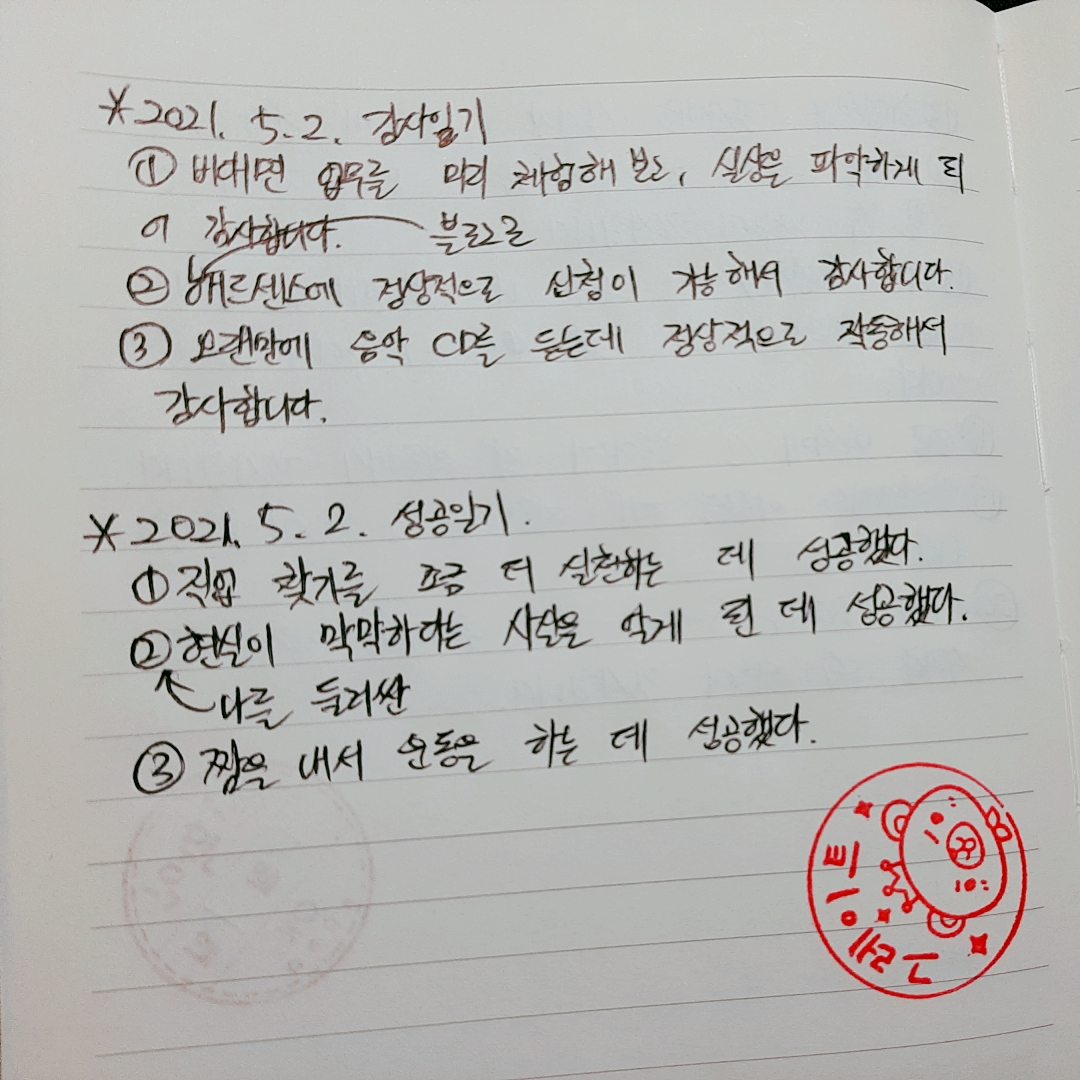 *2021. 5. 2. 감사일기
① 비대면 업무를 미리 체험해 보고, 실상을 파악하게 되
어 감사합니다. 블로그로
② 애드센스에 정상적으로 신청이 가능해서 감사합니다.
③ 오랜만에 음악 CD를 듣는데 정상적으로 작동해서
감사합니다.
*2021. 5. 2. 성공일기.
① 직업 찾기를 조금 더 실천하는 데 성공했다.
② 현실이 막막하다는 사실을 알게 된 데 성공했다.
나를 둘러싼
③ 짬을 내서 운동을 하는 데 성공했다.